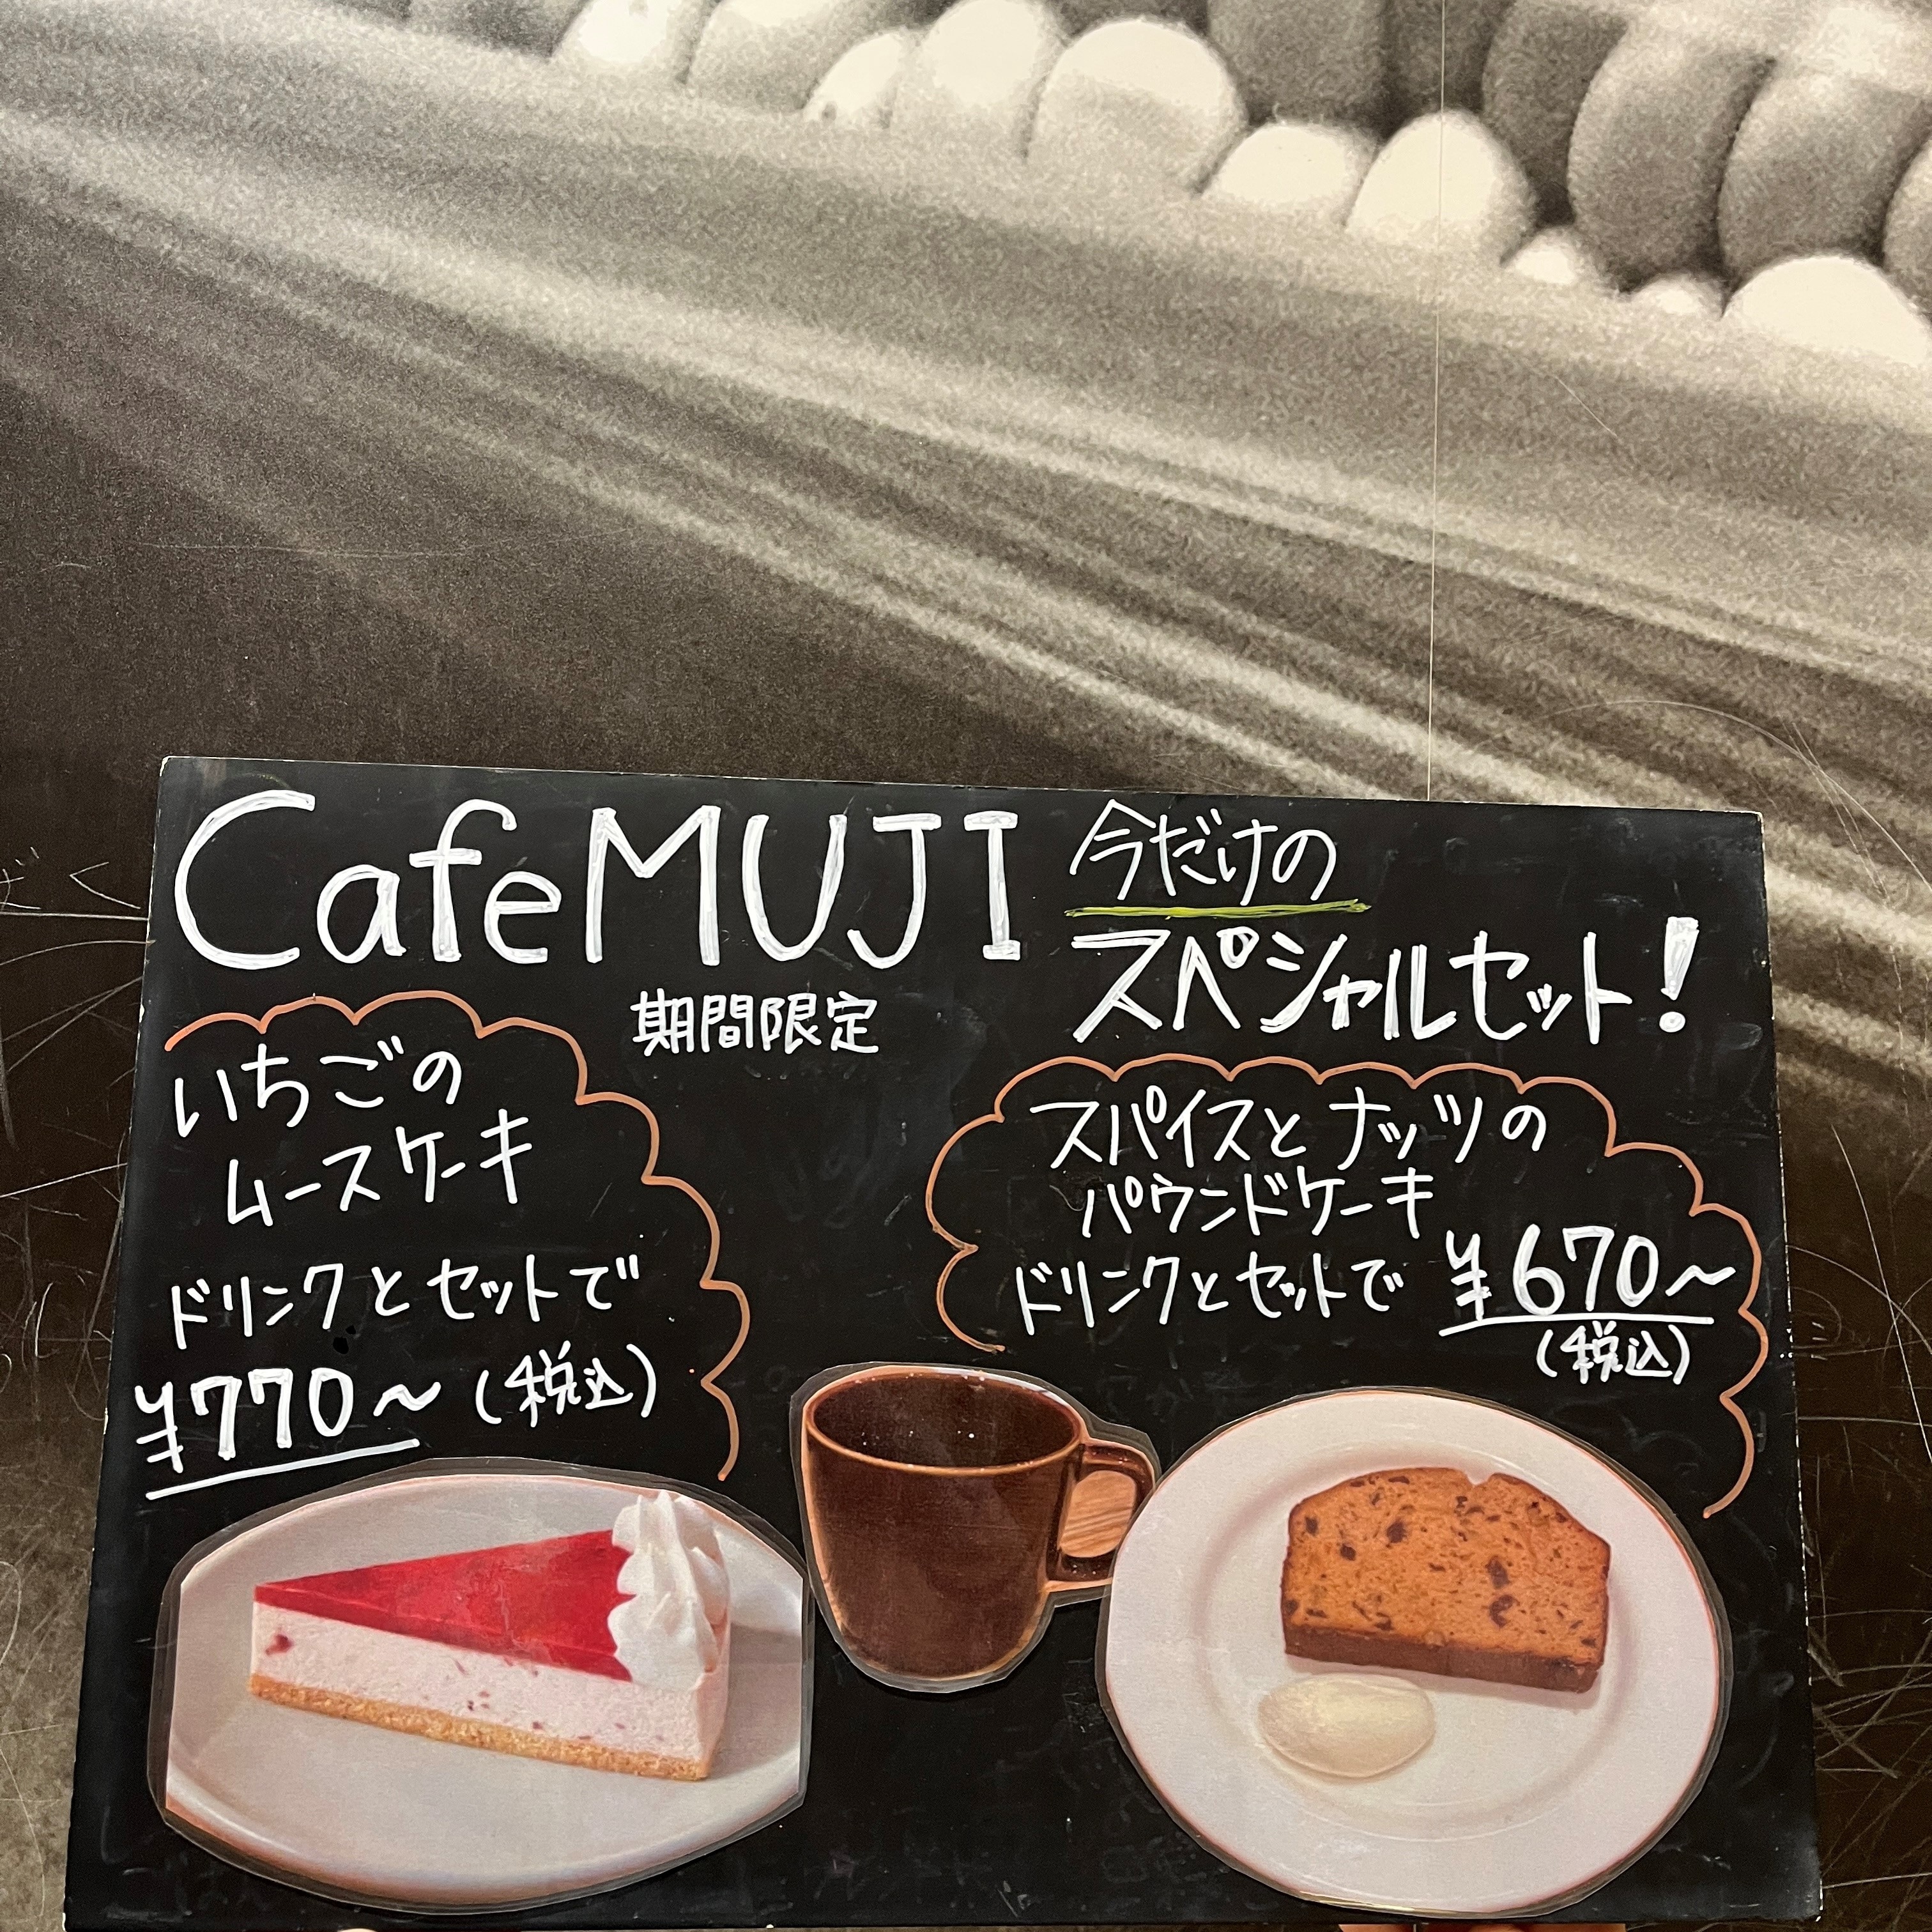 Cafe MUJI
今だけの
スペシャルセット!
期間限定
いちごの
ムースケーキ
ドリンクとセットで
¥770～(税込)
スパイスとナッツの
パウンドケーキ
ドリンクとセットで ¥670～
(税込)